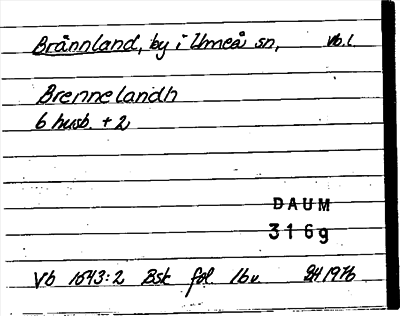 Brännland, by i Umeå sn, Vb.l.
Brennelandh
6 husb. + 2
DAUM
3169
Vb 1543:2 Bsk fol. 16v. 1976